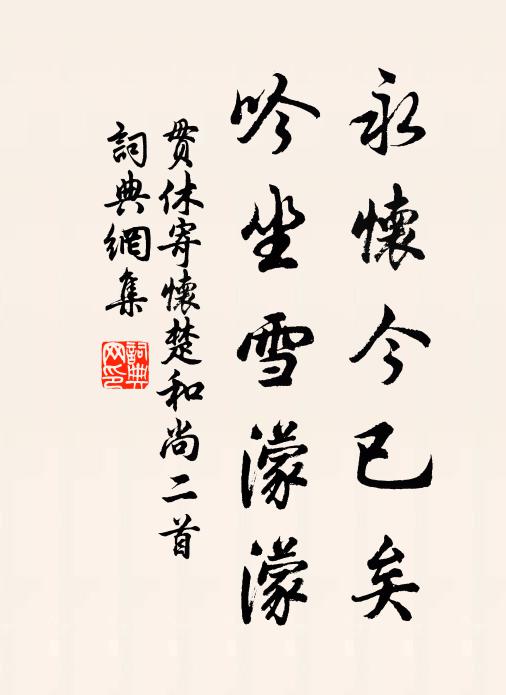 永懷今已矣
吟坐雪濛濛
貫休寄懷楚和尚二首
詞典網集
詞典網印